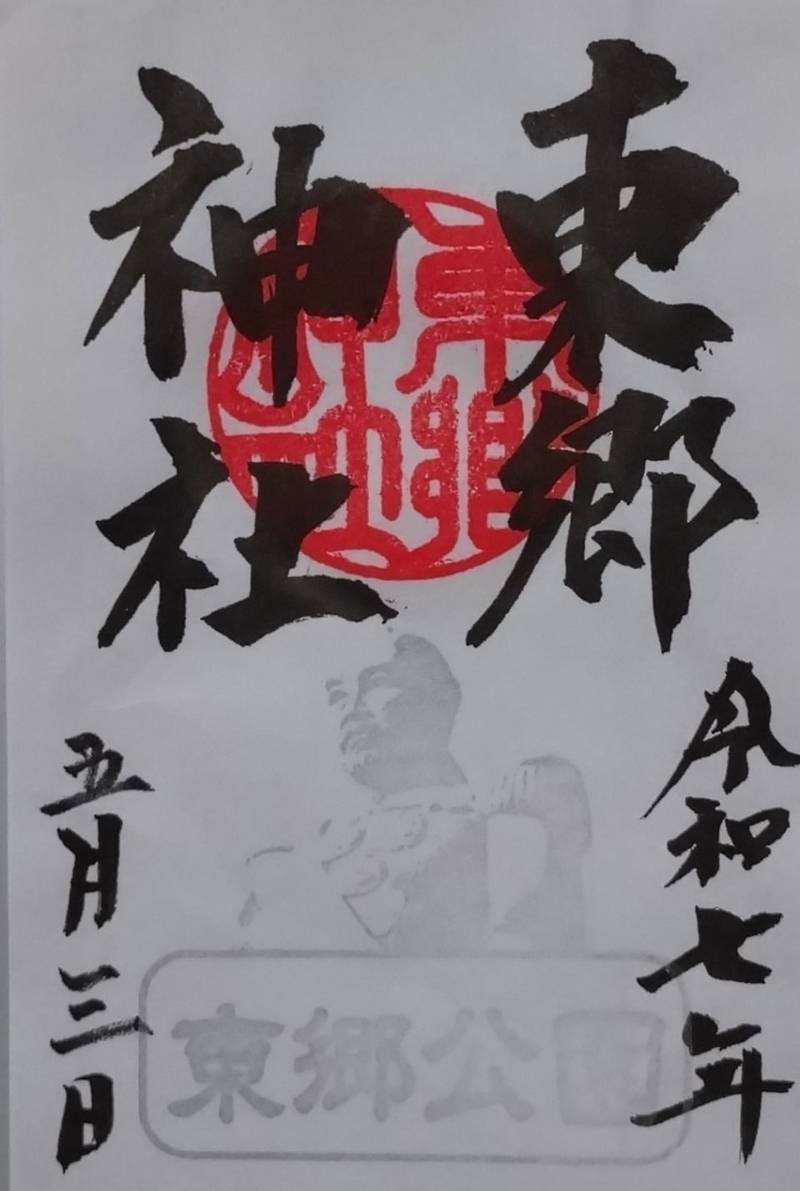 東郷
神社
令和七年
五月三日
東郷公園